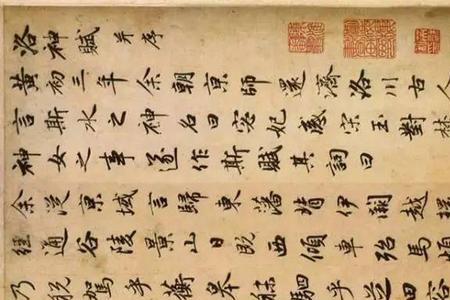 洛神賦并序
黃初三年余朝京師還濟洛川古人
言斯水之神名曰宓妃感宋玉對楚
神女之事遂作斯賦其詞曰
余從京域言歸東藩背伊闕越轘
經通谷陵景山日既西傾車殆馬煩
乃稅駕乎蘅皋秣駟乎芝田